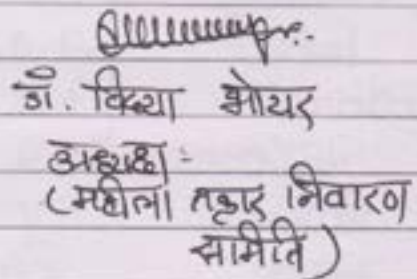 डॉ. विद्या भोयर
अध्यक्षा :
(महीला तक्रार निवारण
समिति)